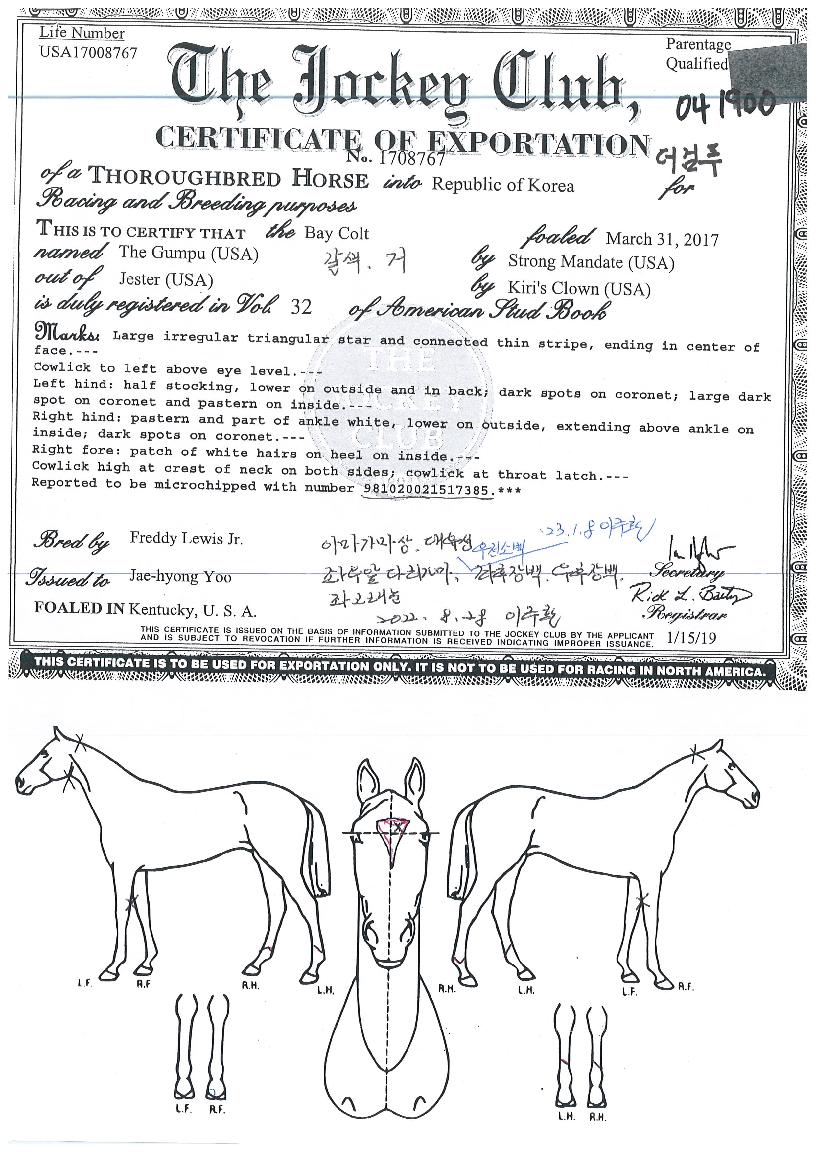 Life Number
USA17008767
Parentage
Qualified
The Jockey Club,
041900
CERTIFICATE OF EXPORTATION
No. 1708767
더검푸
of a THOROUGHBRED HORSE into Republic of Korea for
Racing and Breeding purposes
THIS IS TO CERTIFY THAT the Bay Colt foaled March 31, 2017
named The Gumpu (USA) 갈색. 거 by Strong Mandate (USA)
out of Jester (USA) by Kiri's Clown (USA)
is duly registered in Vol. 32 of American Stud Book
Marks: Large irregular triangular star and connected thin stripe, ending in center of
face.---
Cowlick to left above eye level.---
Left hind: half stocking, lower on outside and in back; dark spots on coronet; large dark
spot on coronet and pastern on inside.---
Right hind: pastern and part of ankle white, lower on outside, extending above ankle on
inside; dark spots on coronet.---
Right fore: patch of white hairs on heel on inside.---
Cowlick high at crest of neck on both sides; cowlick at throat latch.---
Reported to be microchipped with number 981020021517385.***
THE
JOCKEY
CLUB
Bred by Freddy Lewis Jr.
우전소백 '23.1.8 이주환
Issued to Jae-hyong Yoo
좌후장백. 우후장백.
Secretary
FOALED IN Kentucky, U. S. A.
2022. 8. 28 이주환
Registrar
THIS CERTIFICATE IS ISSUED ON THE BASIS OF INFORMATION SUBMITTED TO THE JOCKEY CLUB BY THE APPLICANT
AND IS SUBJECT TO REVOCATION IF FURTHER INFORMATION IS RECEIVED INDICATING IMPROPER ISSUANCE.
1/15/19
THIS CERTIFICATE IS TO BE USED FOR EXPORTATION ONLY. IT IS NOT TO BE USED FOR RACING IN NORTH AMERICA.
L.F. R.F R.H. L.H. R.H. L.H. L.F. R.F.
L.F. R.F. L.H. R.H.